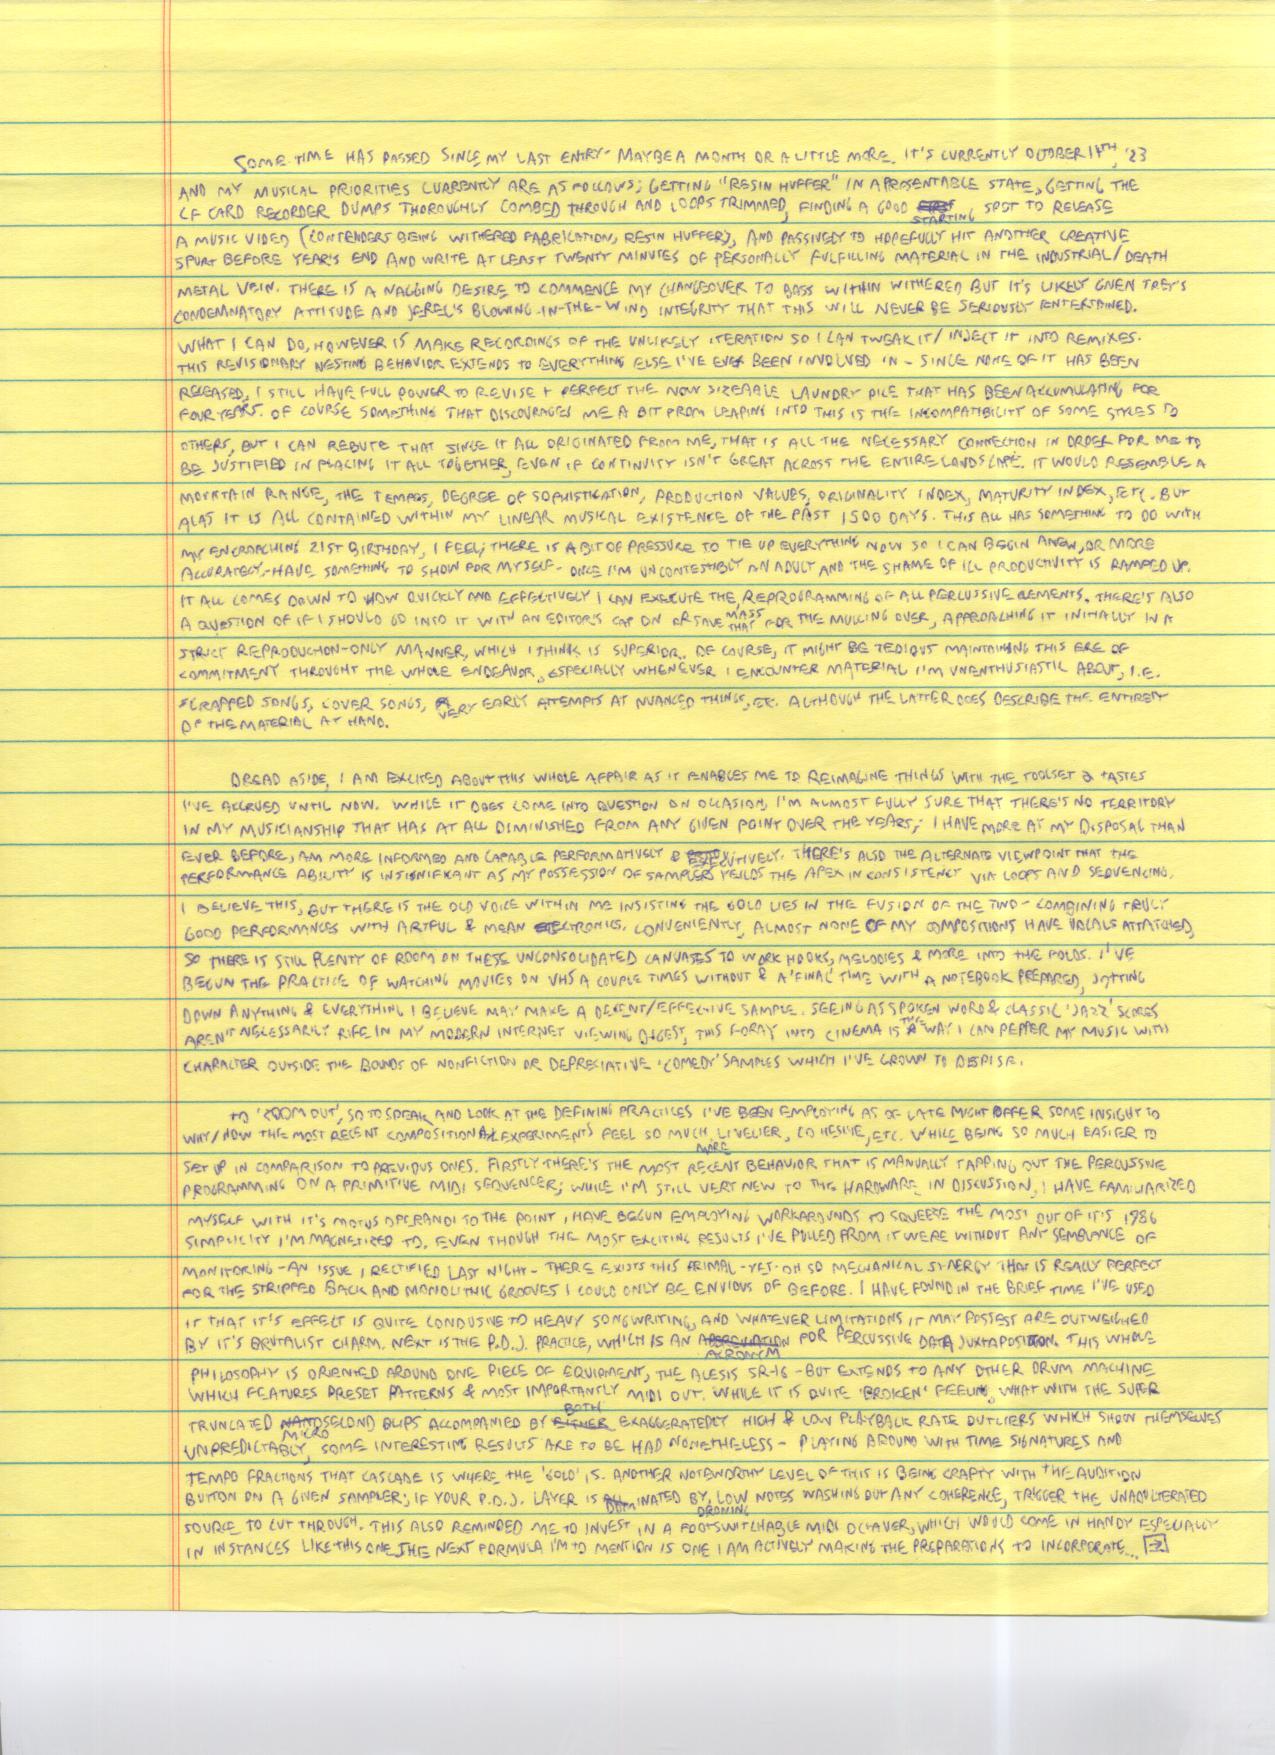 SOME TIME HAS PASSED SINCE MY LAST ENTRY - MAYBE A MONTH OR A LITTLE MORE. IT'S CURRENTLY OCTOBER 14TH, '23
AND MY MUSICAL PRIORITIES CURRENTLY ARE AS FOLLOWS; GETTING "RESIN HUFFER" IN A PRESENTABLE STATE, GETTING THE
CF CARD RECORDER DUMPS THOROUGHLY COMBED THROUGH AND LOOPS TRIMMED, FINDING A GOOD STARTING SPOT TO RELEASE
A MUSIC VIDEO (CONTENDERS BEING WITHERED FABRICATION, RESIN HUFFER), AND PASSIVELY TO HOPEFULLY HIT ANOTHER CREATIVE
SPURT BEFORE YEAR'S END AND WRITE AT LEAST TWENTY MINUTES OF PERSONALLY FULFILLING MATERIAL IN THE INDUSTRIAL/DEATH
METAL VEIN. THERE IS A NAGGING DESIRE TO COMMENCE MY CHANGEOVER TO BASS WITHIN WITHERED BUT IT'S LIKELY GIVEN TREY'S
CONDEMNATORY ATTITUDE AND JEREL'S BLOWING-IN-THE-WIND INTEGRITY THAT THIS WILL NEVER BE SERIOUSLY ENTERTAINED.
WHAT I CAN DO, HOWEVER IS MAKE RECORDINGS OF THE UNLIKELY ITERATION SO I CAN TWEAK IT/INJECT IT INTO REMIXES.
THIS REVISIONARY NESTING BEHAVIOR EXTENDS TO EVERYTHING ELSE I'VE EVER BEEN INVOLVED IN - SINCE NONE OF IT HAS BEEN
RELEASED, I STILL HAVE FULL POWER TO REVISE + PERFECT THE NOW SIZEABLE LAUNDRY PILE THAT HAS BEEN ACCUMULATING FOR
FOUR YEARS. OF COURSE SOMETHING THAT DISCOURAGES ME A BIT FROM LEAPING INTO THIS IS THE INCOMPATIBILITY OF SOME STYLES TO
OTHERS, BUT I CAN REBUTE THAT SINCE IT ALL ORIGINATED FROM ME, THAT IS ALL THE NECESSARY CONNECTION IN ORDER FOR ME TO
BE JUSTIFIED IN PLACING IT ALL TOGETHER, EVEN IF CONTINUITY ISN'T GREAT ACROSS THE ENTIRE LANDSCAPE. IT WOULD RESEMBLE A
MOUNTAIN RANGE, THE TEMPOS, DEGREE OF SOPHISTICATION, PRODUCTION VALUES, ORIGINALITY INDEX, MATURITY INDEX, ETC. BUT
ALAS IT IS ALL CONTAINED WITHIN MY LINEAR MUSICAL EXISTENCE OF THE PAST 1500 DAYS. THIS ALL HAS SOMETHING TO DO WITH
MY ENCROACHING 21ST BIRTHDAY, I FEEL; THERE IS A BIT OF PRESSURE TO TIE UP EVERYTHING NOW SO I CAN BEGIN ANEW, OR MORE
ACCURATELY - HAVE SOMETHING TO SHOW FOR MYSELF - ONCE I'M UNCONTESTIBLY AN ADULT AND THE SHAME OF ILL PRODUCTIVITY IS RAMPED UP.
IT ALL COMES DOWN TO HOW QUICKLY AND EFFECTIVELY I CAN EXECUTE THE REPROGRAMMING OF ALL PERCUSSIVE ELEMENTS. THERE'S ALSO
A QUESTION OF IF I SHOULD GO INTO IT WITH AN EDITOR'S CAP ON OR SAVE THAT FOR THE MASS MULLING OVER, APPROACHING IT INITIALLY IN A
STRICT REPRODUCTION-ONLY MANNER, WHICH I THINK IS SUPERIOR. OF COURSE, IT MIGHT BE TEDIOUS MAINTAINING THIS ERE OF
COMMITMENT THROUGHT THE WHOLE ENDEAVOR, ESPECIALLY WHENEVER I ENCOUNTER MATERIAL I'M UNENTHUSIASTIC ABOUT, I.E.
SCRAPPED SONGS, COVER SONGS, VERY EARLY ATTEMPTS AT NUANCED THINGS, ETC. ALTHOUGH THE LATTER DOES DESCRIBE THE ENTIRETY
OF THE MATERIAL AT HAND.
DREAD ASIDE, I AM EXCITED ABOUT THIS WHOLE AFFAIR AS IT ENABLES ME TO REIMAGINE THINGS WITH THE TOOLSET & TASTES
I'VE ACCRUED UNTIL NOW. WHILE IT DOES COME INTO QUESTION ON OCCASION, I'M ALMOST FULLY SURE THAT THERE'S NO TERRITORY
IN MY MUSICIANSHIP THAT HAS AT ALL DIMINISHED FROM ANY GIVEN POINT OVER THE YEARS; I HAVE MORE AT MY DISPOSAL THAN
EVER BEFORE, AM MORE INFORMED AND CAPABLE PERFORMATIVELY & EXECUTIVELY. THERE'S ALSO THE ALTERNATE VIEWPOINT THAT THE
PERFORMANCE ABILITY IS INSIGNIFIKANT AS MY POSSESSION OF SAMPLERS YEILDS THE APEX IN CONSISTENCY VIA LOOPS AND SEQUENCING.
I BELIEVE THIS, BUT THERE IS THE OLD VOICE WITHIN ME INSISTING THE GOLD LIES IN THE FUSION OF THE TWO - COMBINING TRULY
GOOD PERFORMANCES WITH ARTFUL & MEAN ELECTRONICS. CONVENIENTLY, ALMOST NONE OF MY COMPOSITIONS HAVE VOCALS ATTATCHED,
SO THERE IS STILL PLENTY OF ROOM ON THESE UNCONSOLIDATED CANVASES TO WORK HOOKS, MELODIES & MORE INTO THE FOLDS. I'VE
BEGUN THE PRACTICE OF WATCHING MOVIES ON VHS A COUPLE TIMES WITHOUT & A 'FINAL' TIME WITH A NOTEBOOK PREPARED, JOTTING
DOWN ANYTHING & EVERYTHING I BELIEVE MAY MAKE A DECENT/EFFECTIVE SAMPLE. SEEING AS SPOKEN WORD & CLASSIC 'JAZZ' SCORES
AREN'T NECESSARILY RIFE IN MY MODERN INTERNET VIEWING DIGEST, THIS FORAY INTO CINEMA IS THE WAY I CAN PEPPER MY MUSIC WITH
CHARACTER OUTSIDE THE BOUNDS OF NONFICTION OR DEPRECIATIVE 'COMEDY' SAMPLES WHICH I'VE GROWN TO DISPISE.
TO 'ZOOM OUT', SO TO SPEAK AND LOOK AT THE DEFINING PRACTICES I'VE BEEN EMPLOYING AS OF LATE MIGHT OFFER SOME INSIGHT TO
WHY/HOW THE MOST RECENT COMPOSITIONAL EXPERIMENTS FEEL SO MUCH MORE LIVELIER, COHESIVE, ETC. WHILE BEING SO MUCH EASIER TO
SET UP IN COMPARISON TO PREVIOUS ONES. FIRSTLY THERE'S THE MOST RECENT BEHAVIOR THAT IS MANUALLY TAPPING OUT THE PERCUSSIVE
PROGRAMMING ON A PRIMITIVE MIDI SEQUENCER; WHILE I'M STILL VERY NEW TO THE HARDWARE IN DISCUSSION, I HAVE FAMILIARIZED
MYSELF WITH IT'S MOTUS OPERANDI TO THE POINT I HAVE BEGUN EMPLOYING WORKAROUNDS TO SQUEEZE THE MOST OUT OF IT'S 1986
SIMPLICITY I'M MAGNETIZED TO. EVEN THOUGH THE MOST EXCITING RESULTS I'VE PULLED FROM IT WERE WITHOUT ANY SEMBLANCE OF
MONITORING - AN ISSUE I RECTIFIED LAST NIGHT - THERE EXISTS THIS PRIMAL - YET - OH SO MECHANICAL SYNERGY THAT IS REALLY PERFECT
FOR THE STRIPPED BACK AND MONOLITHIC GROOVES I COULD ONLY BE ENVIOUS OF BEFORE. I HAVE FOUND IN THE BRIEF TIME I'VE USED
IT THAT IT'S EFFECT IS QUITE CONDUSIVE TO HEAVY SONGWRITING, AND WHATEVER LIMITATIONS IT MAY POSSESS ARE OUTWEIGHED
BY IT'S BRUTALIST CHARM. NEXT IS THE P.D.J. PRACTICE, WHICH IS AN ACRONYM FOR PERCUSSIVE DATA JUXTAPOSITION. THIS WHOLE
PHILOSOPHY IS ORIENTED AROUND ONE PIECE OF EQUIPMENT, THE ALESIS SR-16 - BUT EXTENDS TO ANY OTHER DRUM MACHINE
WHICH FEATURES PRESET PATTERNS & MOST IMPORTANTLY MIDI OUT. WHILE IT IS QUITE 'BROKEN' FEELING, WHAT WITH THE SUPER
TRUNCATED MICROSECOND BLIPS ACCOMPANIED BY BOTH EXAGGERATEDLY HIGH & LOW PLAYBACK RATE OUTLIERS WHICH SHOW THEMSELVES
UNPREDICTABLY, SOME INTERESTING RESULTS ARE TO BE HAD NONETHELESS - PLAYING AROUND WITH TIME SIGNATURES AND
TEMPO FRACTIONS THAT CASCADE IS WHERE THE 'GOLD' IS. ANOTHER NOTEWORTHY LEVEL OF THIS IS BEING CRAFTY WITH THE AUDITION
BUTTON ON A GIVEN SAMPLER; IF YOUR P.D.J. LAYER IS DOMINATED BY DRONING LOW NOTES WASHING OUT ANY COHERENCE, TRIGGER THE UNADULTERATED
SOURCE TO CUT THROUGH. THIS ALSO REMINDED ME TO INVEST IN A FOOTSWITCHABLE MIDI OCTAVER, WHICH WOULD COME IN HANDY ESPECIALLY
IN INSTANCES LIKE THIS ONE. THE NEXT FORMULA I'M TO MENTION IS ONE I AM ACTIVELY MAKING THE PREPARATIONS TO INCORPORATE... →